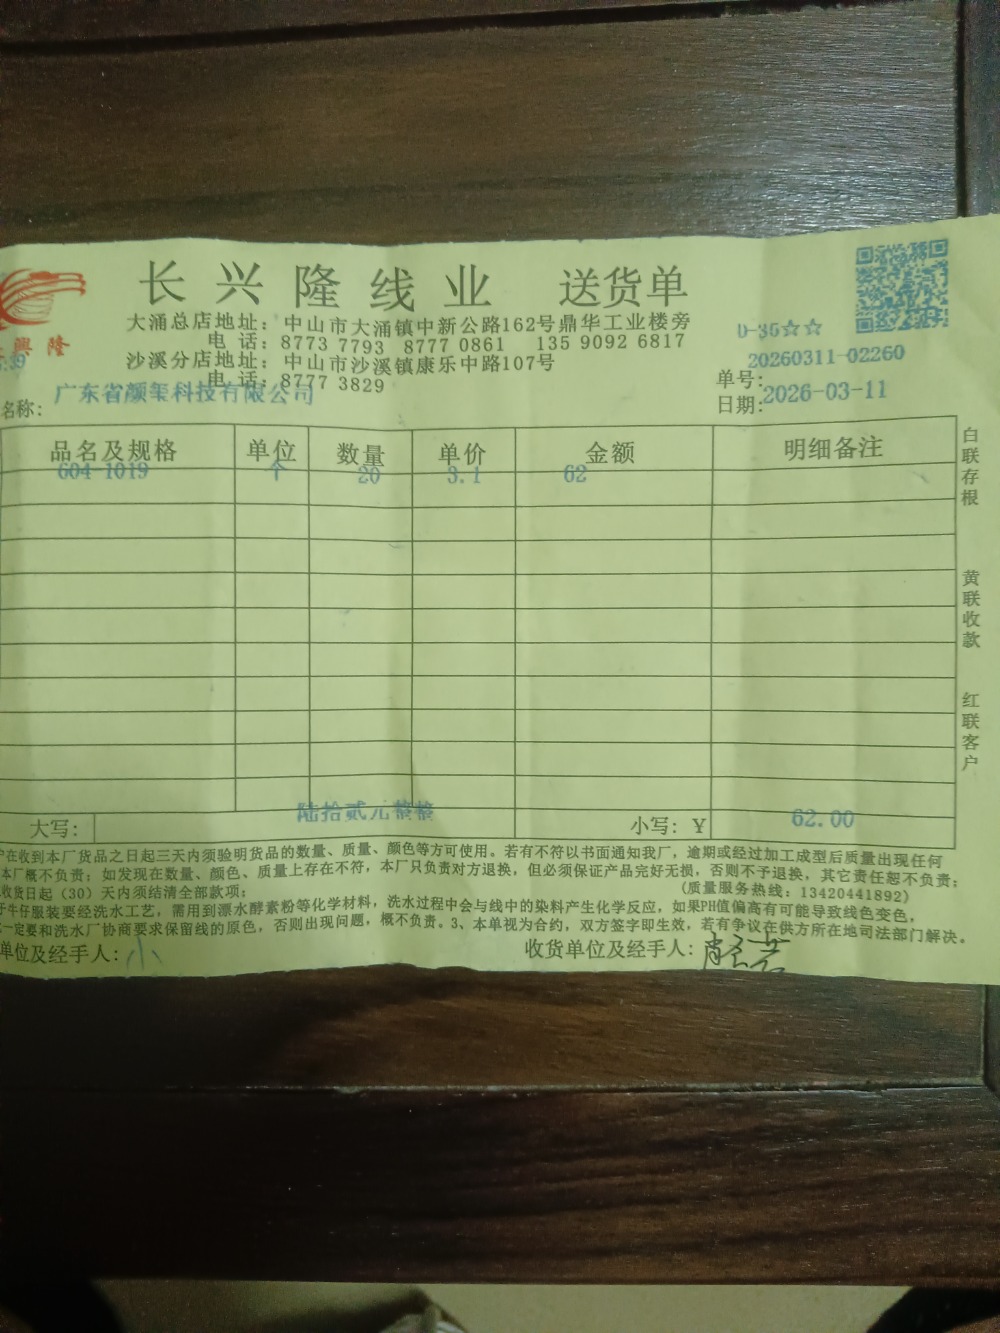 长兴隆线业 送货单
大涌总店地址：中山市大涌镇中新公路162号鼎华工业楼旁
电话：8773 7793 8777 0861 135 9092 6817
沙溪分店地址：中山市沙溪镇康乐中路107号
电话：8777 3829
興隆
0-35☆☆
单号：20260311-02260
日期：2026-03-11
名称：广东省颜玺科技有限公司
品名及规格 单位 数量 单价 金额 明细备注
604 1019 个 20 3.1 62
白联存根
黄联收款
红联客户
大写：陆拾贰元整整 小写：￥62.00
在收到本厂货品之日起三天内须验明货品的数量、质量、颜色等方可使用。若有不符以书面通知我厂，逾期或经过加工成型后质量出现任何
本厂概不负责；如发现在数量、颜色、质量上存在不符，本厂只负责对方退换，但必须保证产品完好无损，否则不予退换，其它责任恕不负责；
收货日起（30）天内须结清全部款项； （质量服务热线：13420441892）
牛仔服装要经洗水工艺，需用到漂水酵素粉等化学材料，洗水过程中会与线中的染料产生化学反应，如果PH值偏高有可能导致线色变色，
一定要和洗水厂协商要求保留线的原色，否则出现问题，概不负责。3、本单视为合约，双方签字即生效，若有争议在供方所在地司法部门解决。
单位及经手人：小 收货单位及经手人：